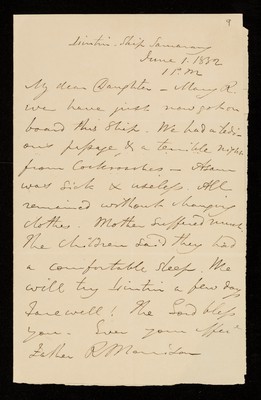 9
Lintin. Ship Samarang
June 1. 1832
1 P.M
My dear Daughter – Mary R.
we have just now got on
board this Ship. We had a tedi-
ous passage, & a terrible night
from Cockroaches – Asam
was Sick & useless. All
remained without changing
clothes. Mother suffered much.
The children said they had
a comfortable sleep. We
will try Lintin a few days
Farewell! The Lord bless
you. Ever your affec
Father R Morrison